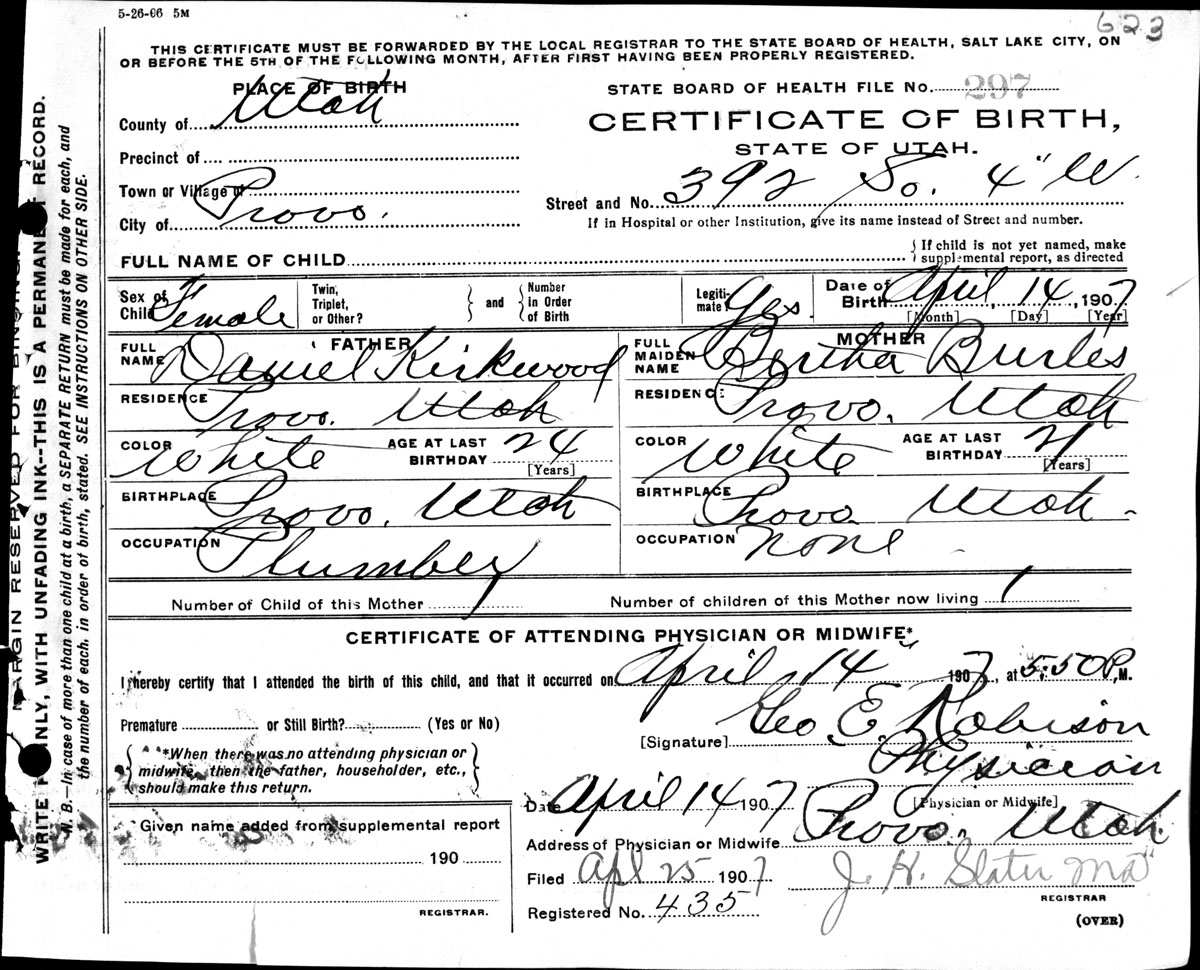 5-26-06 5M
623
THIS CERTIFICATE MUST BE FORWARDED BY THE LOCAL REGISTRAR TO THE STATE BOARD OF HEALTH, SALT LAKE CITY, ON
OR BEFORE THE 5TH OF THE FOLLOWING MONTH, AFTER FIRST HAVING BEEN PROPERLY REGISTERED.
PLACE OF BIRTH
County of Utah
Precinct of
Town or Village of
City of Provo.
STATE BOARD OF HEALTH FILE No. 297
CERTIFICATE OF BIRTH,
STATE OF UTAH.
Street and No. 392 So. 4" W.
If in Hospital or other Institution, give its name instead of Street and number.
FULL NAME OF CHILD
{ If child is not yet named, make
supplemental report, as directed
Sex of Child Female
Twin, Triplet, or Other? } and { Number in Order of Birth
Legitimate? Yes.
Date of Birth April 14, 1907
[Month] [Day] [Year]
FATHER
FULL NAME Daniel Kirkwood
RESIDENCE Provo. Utah
COLOR White AGE AT LAST BIRTHDAY 24 [Years]
BIRTHPLACE Provo. Utah
OCCUPATION Plumber
MOTHER
FULL MAIDEN NAME Bertha Burles
RESIDENCE Provo. Utah
COLOR White AGE AT LAST BIRTHDAY 21 [Years]
BIRTHPLACE Provo Utah-
OCCUPATION None -
Number of Child of this Mother 1 Number of children of this Mother now living 1
CERTIFICATE OF ATTENDING PHYSICIAN OR MIDWIFE*
I hereby certify that I attended the birth of this child, and that it occurred on April 14" 1907, at 5:50 P. M.
Premature or Still Birth? (Yes or No)
{ *When there was no attending physician or
midwife, then the father, householder, etc.,
should make this return. }
[Signature] Geo E. Robison
Physician
[Physician or Midwife]
Date April 14 1907
Address of Physician or Midwife Provo. Utah
Given name added from supplemental report
190
REGISTRAR.
Filed Apl 25 1907 J. H. Slater MD
REGISTRAR
Registered No. 435
(OVER)
MARGIN RESERVED FOR BINDING.
WRITE ONLY, WITH UNFADING INK--THIS IS A PERMANENT RECORD.
N. B.—In case of more than one child at a birth, a SEPARATE RETURN must be made for each, and
the number of each, in order of birth, stated. SEE INSTRUCTIONS ON OTHER SIDE.